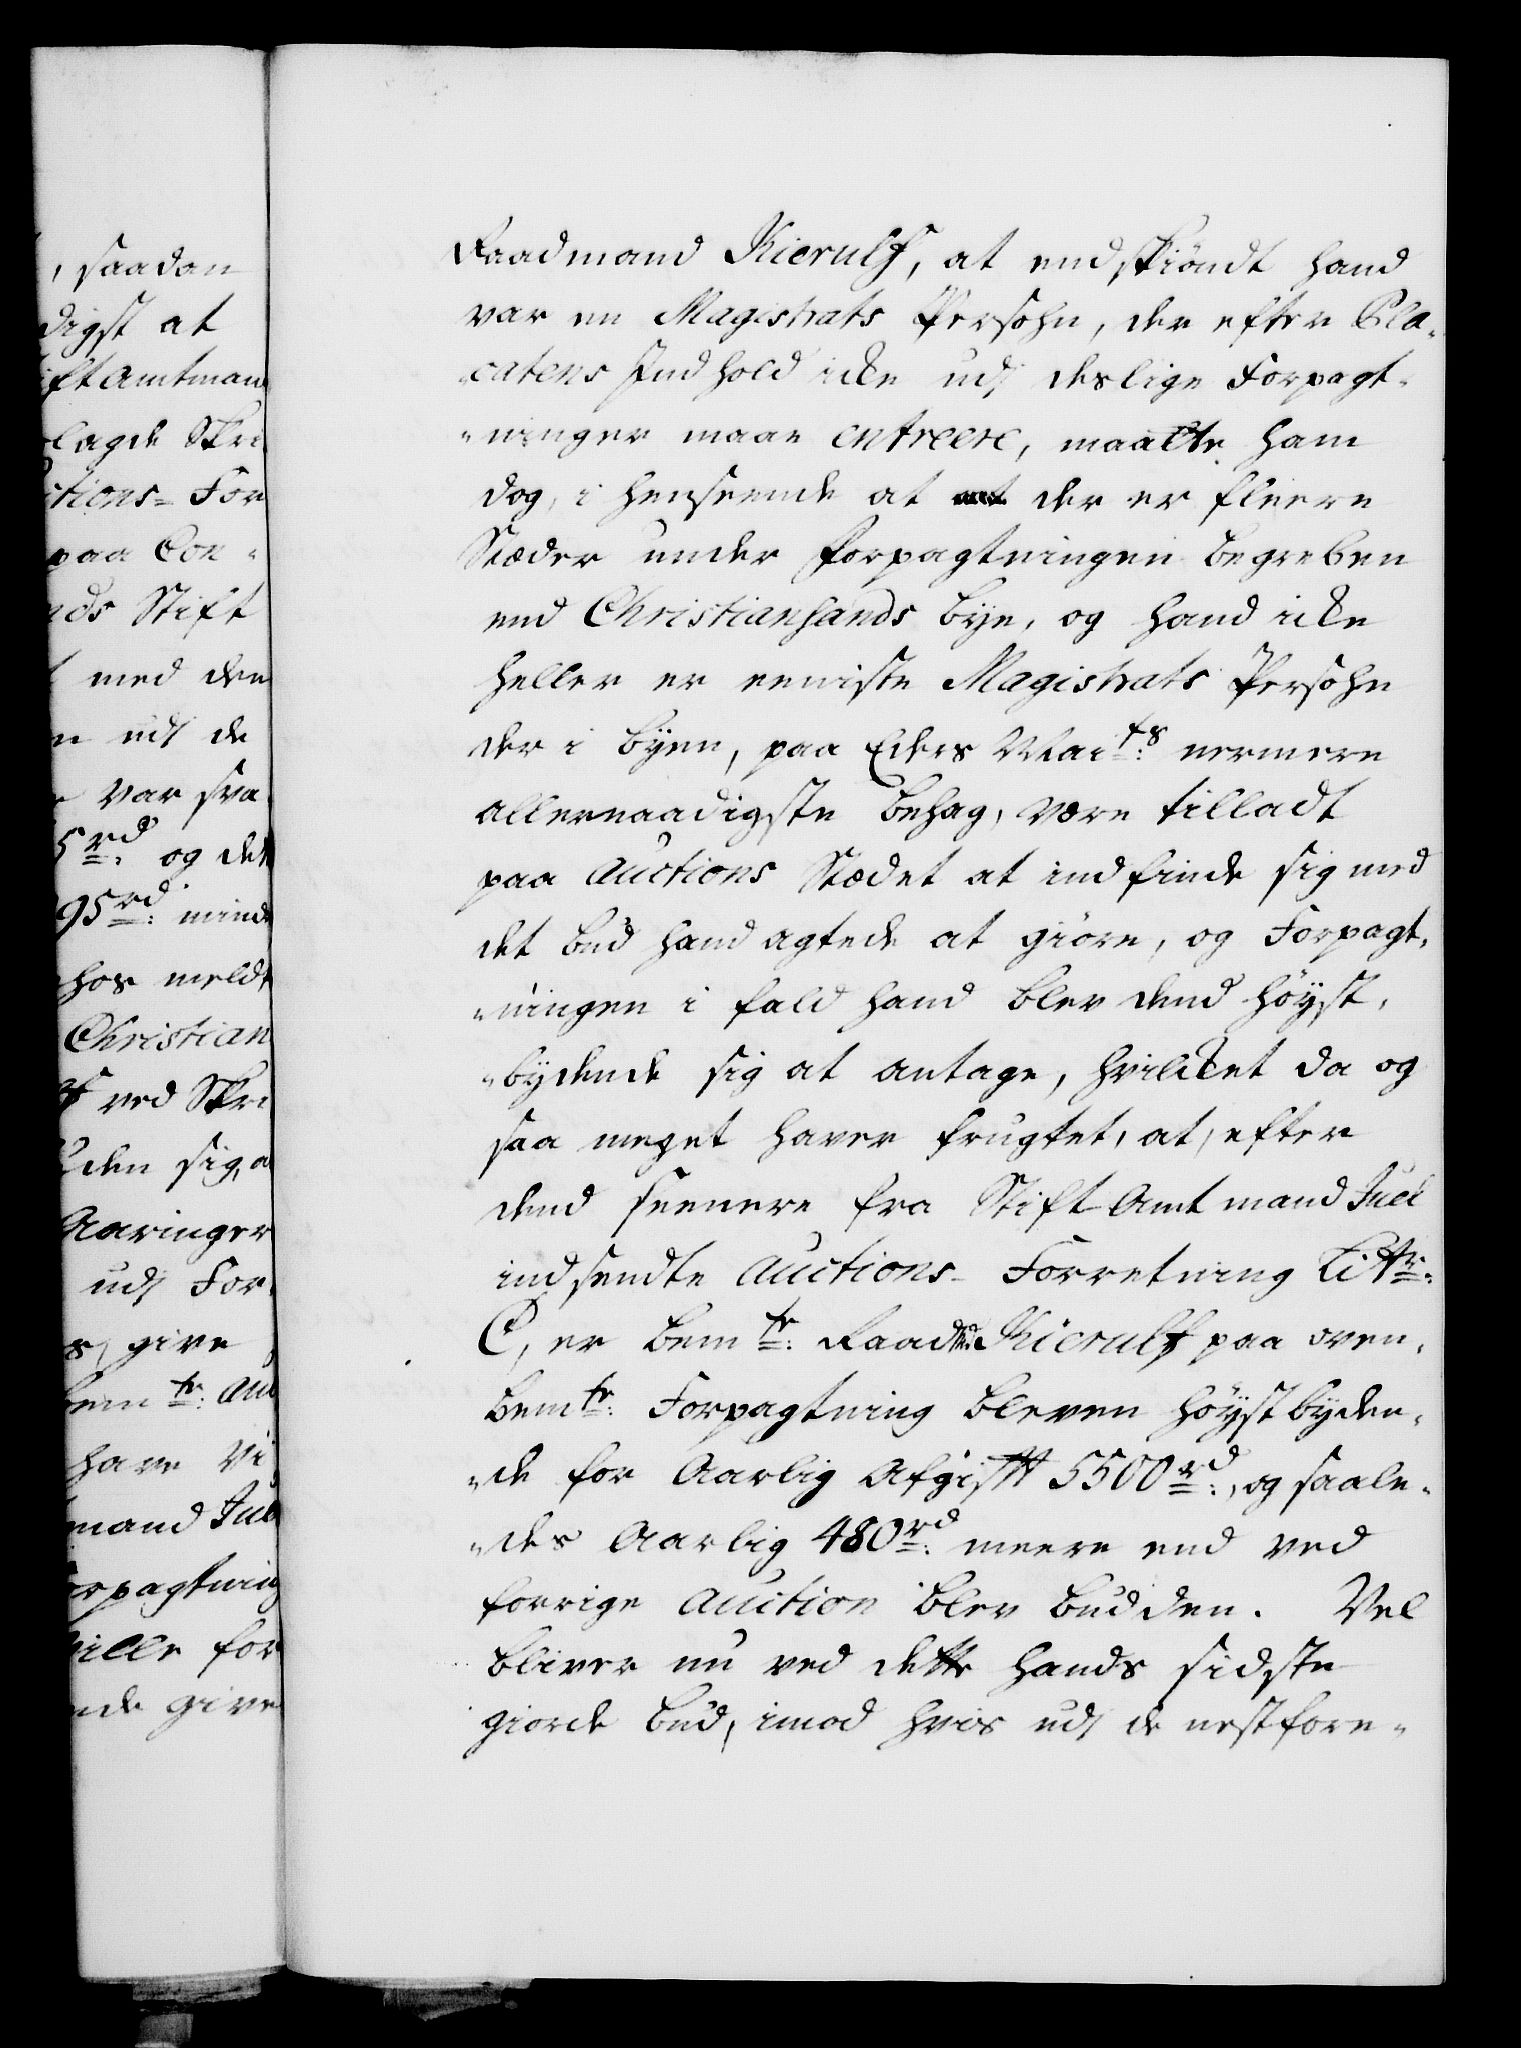 , saadan
digst at
ift Amtmand
lagde Skri
ctions- For
paa Con-
nds Stift
med den
n udj de
var sva
5rd: og det
95rd: mind
hos meldt
Christian
ved Skri
den sig, a
Aaringer
udj For
s, give
bemte: Auc
have Vi
mand Juel
orpagtning
ville for
nde give
Raadmand Kierulf, at endskiöndt hand
var en Magistrats Persohn, der efter Pla-
-catens Indhold icke udj deslige Forpagt-
-ninger maae entreere, maatte ham
dog, i henseende at der er fleere
Stæder under Forpagtningen begreben
end Christiansands bye, og hand icke
heller er eeniste Magistrats Persohn
der i byen, paa Eders Maits: nermere
allernaadigste behag, være tilladt
paa Auctions Stædet at indfinde sig med
det bud hand agtede at giöre, og Forpagt-
-ningen i fald hand blev dend höyst-
-bydende sig at antage, hvilcket da og
saa meget haver frugtet, at, efter
dend seenere fra Stift Amtmand Juel
indsendte Auctions- Forretning Littr:
C, er bemte: Raadmd: Kierulf paa oven-
bemte: Forpagtning bleven höystbyden-
-de for Aarlig Afgifft 5500rd:, og saale-
-des Aarlig 480rd: meere end ved
forrige Auction blev budden. Vel
bliver nu ved dette hands sidste
giorde bud, imod hvis udj de nestfore-